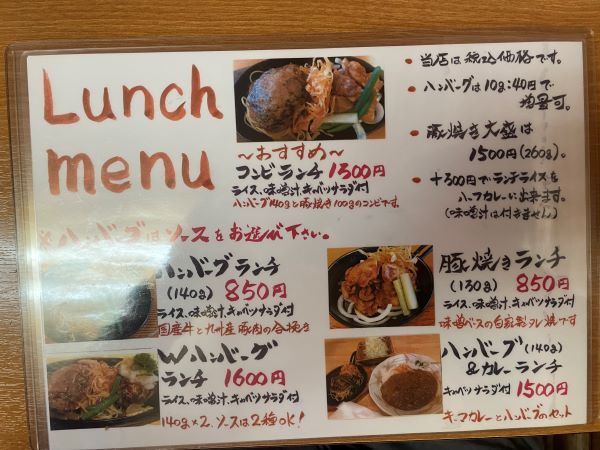 Lunch
menu
～おすすめ～
コンビランチ 1300円
ライス、味噌汁、キャベツサラダ付
ハンバーグ140gと豚焼き100gのコンビです。
・当店は税込価格です。
・ハンバーグは10g:40円で
増量可。
・豚焼き大盛は
1500円(260g)。
・+300円でランチライスを
ハーフカレーに出来ます。
(味噌汁は付きません)
※ハンバーグはソースをお選び下さい。
ハンバーグランチ
(140g) 850円
ライス、味噌汁、キャベツサラダ付
国産牛と九州産豚肉の合挽き
豚焼きランチ
(130g) 850円
ライス、味噌汁、キャベツサラダ付
味噌ベースの自家製タレ焼です
Wハンバーグ
ランチ 1600円
ライス、味噌汁、キャベツサラダ付
140g×2、ソースは2種OK!
ハンバーグ(140g)
&カレーランチ
キャベツサラダ付 1500円
キーマカレーとハンバーグのセット